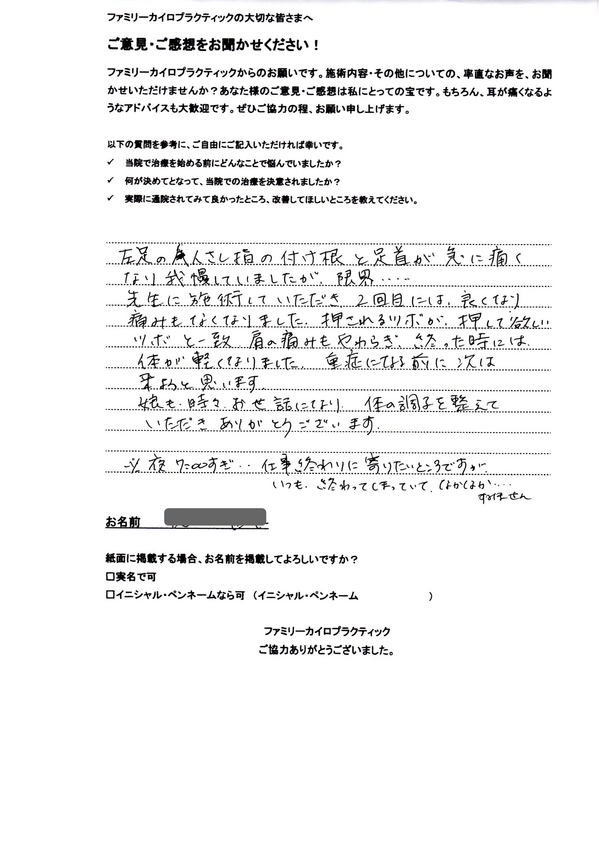 ファミリーカイロプラクティックの大切な皆さまへ
ご意見・ご感想をお聞かせください！
ファミリーカイロプラクティックからのお願いです。施術内容・その他についての、率直なお声を、お聞
かせいただけませんか？あなた様のご意見・ご感想は私にとっての宝です。もちろん、耳が痛くなるよ
うなアドバイスも大歓迎です。ぜひご協力の程、お願い申し上げます。
以下の質問を参考に、ご自由にご記入いただければ幸いです。
✓ 当院で治療を始める前にどんなことで悩んでいましたか？
✓ 何が決めてとなって、当院での治療を決意されましたか？
✓ 実際に通院されてみて良かったところ、改善してほしいところを教えてください。
左足の人さし指の付け根と足首が急に痛く
なり我慢していましたが、限界……
先生に施術していただき 2回目には、良くなり
痛みもなくなりました。押されるツボが、押して欲しい
ツボと一致 肩の痛みもやわらぎ、終った時には
体が軽くなりました。重症になる前に次は
来ようと思います
娘も時々お世話になり 体の調子を整えて
いただきありがとうございます。
夜7:00すぎ‥仕事終わりに寄りたいところですが
いつも、終わってしまっていて、なかなか…
すみません
お名前
紙面に掲載する場合、お名前を掲載してよろしいですか？
□実名で可
□イニシャル・ペンネームなら可 （イニシャル・ペンネーム ）
ファミリーカイロプラクティック
ご協力ありがとうございました。